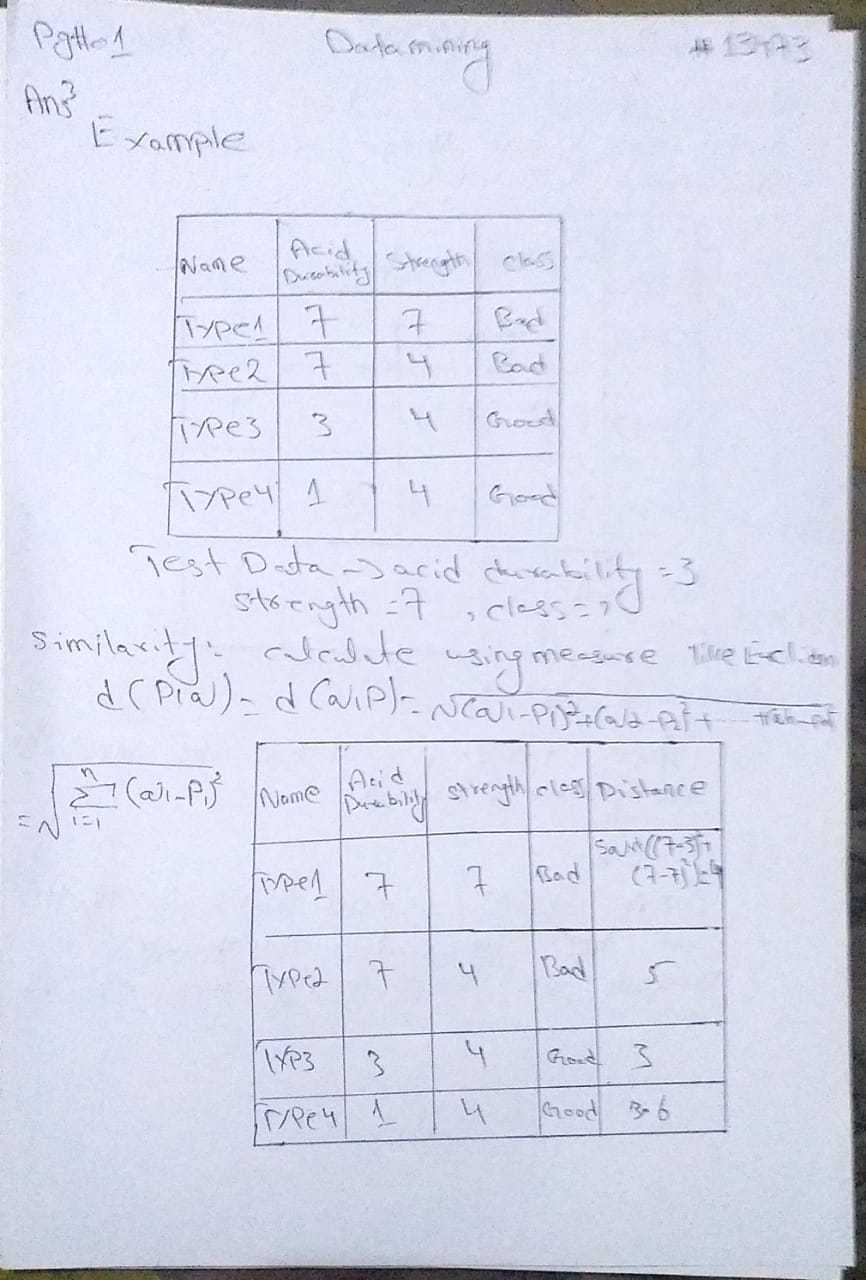 Data mining
Ans
Example
Name Acid Durability Strength class
Type1 7 7 Bad
Type2 7 4 Bad
Type3 3 4 Good
Type4 1 4 Good
Test Data → acid durability = 3
strength = 7 , class = ?
Similarity: calculate using measure like
= √ Σ i=1 n
Name Acid Durability strength class Distance
Type1 7 7 Bad Sqrt((7-3)²+ (7-7)²)=4
Type2 7 4 Bad 5
TYP3 3 4 Good 3
Type4 1 4 Good 3.6